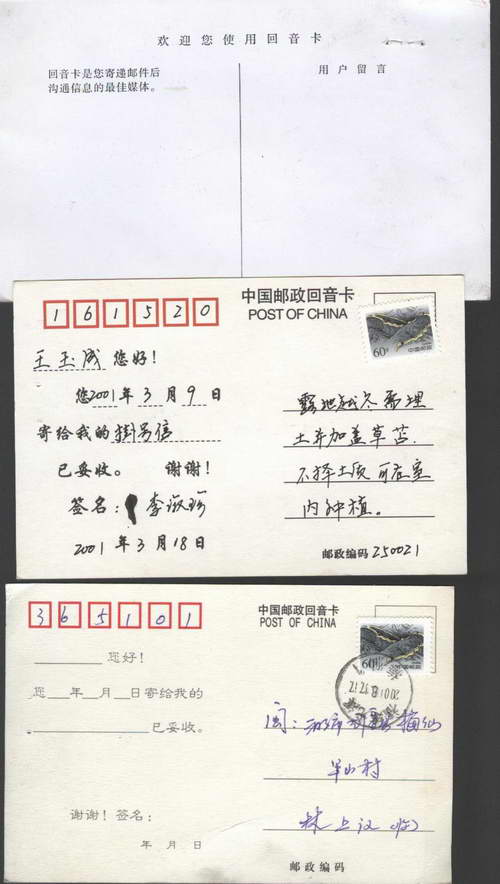 欢迎您使用回音卡
回音卡是您寄递邮件后
沟通信息的最佳媒体。
用户留言
161520
中国邮政回音卡
POST OF CHINA
60分
中国邮政
王玉成 您好！
您2001年3月9日
寄给我的挂号信
已妥收。 谢谢！
签名：李淑珍
2001年3月18日
露地越冬需埋
土并加盖草苫.
不择土质 可在室
内种植。
邮政编码 250021
365101
中国邮政回音卡
POST OF CHINA
60分
您好！
您 年 月 日寄给我的
已妥收。
谢谢！签名：
年 月 日
闽: 梅仙
半山村
林上议
邮政编码